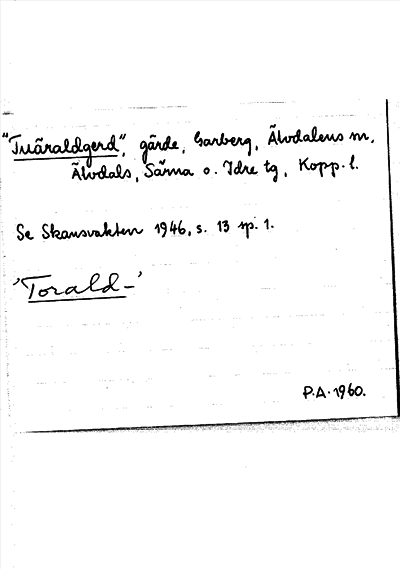 "Tuäraldgerd", gärde, Garberg, Älvdalens sn,
Älvdals, Särna o. Idre tg, Kopp. l.
Se Skansvakten 1946, s. 13 sp. 1.
'Torald-'
P.A. 1960.